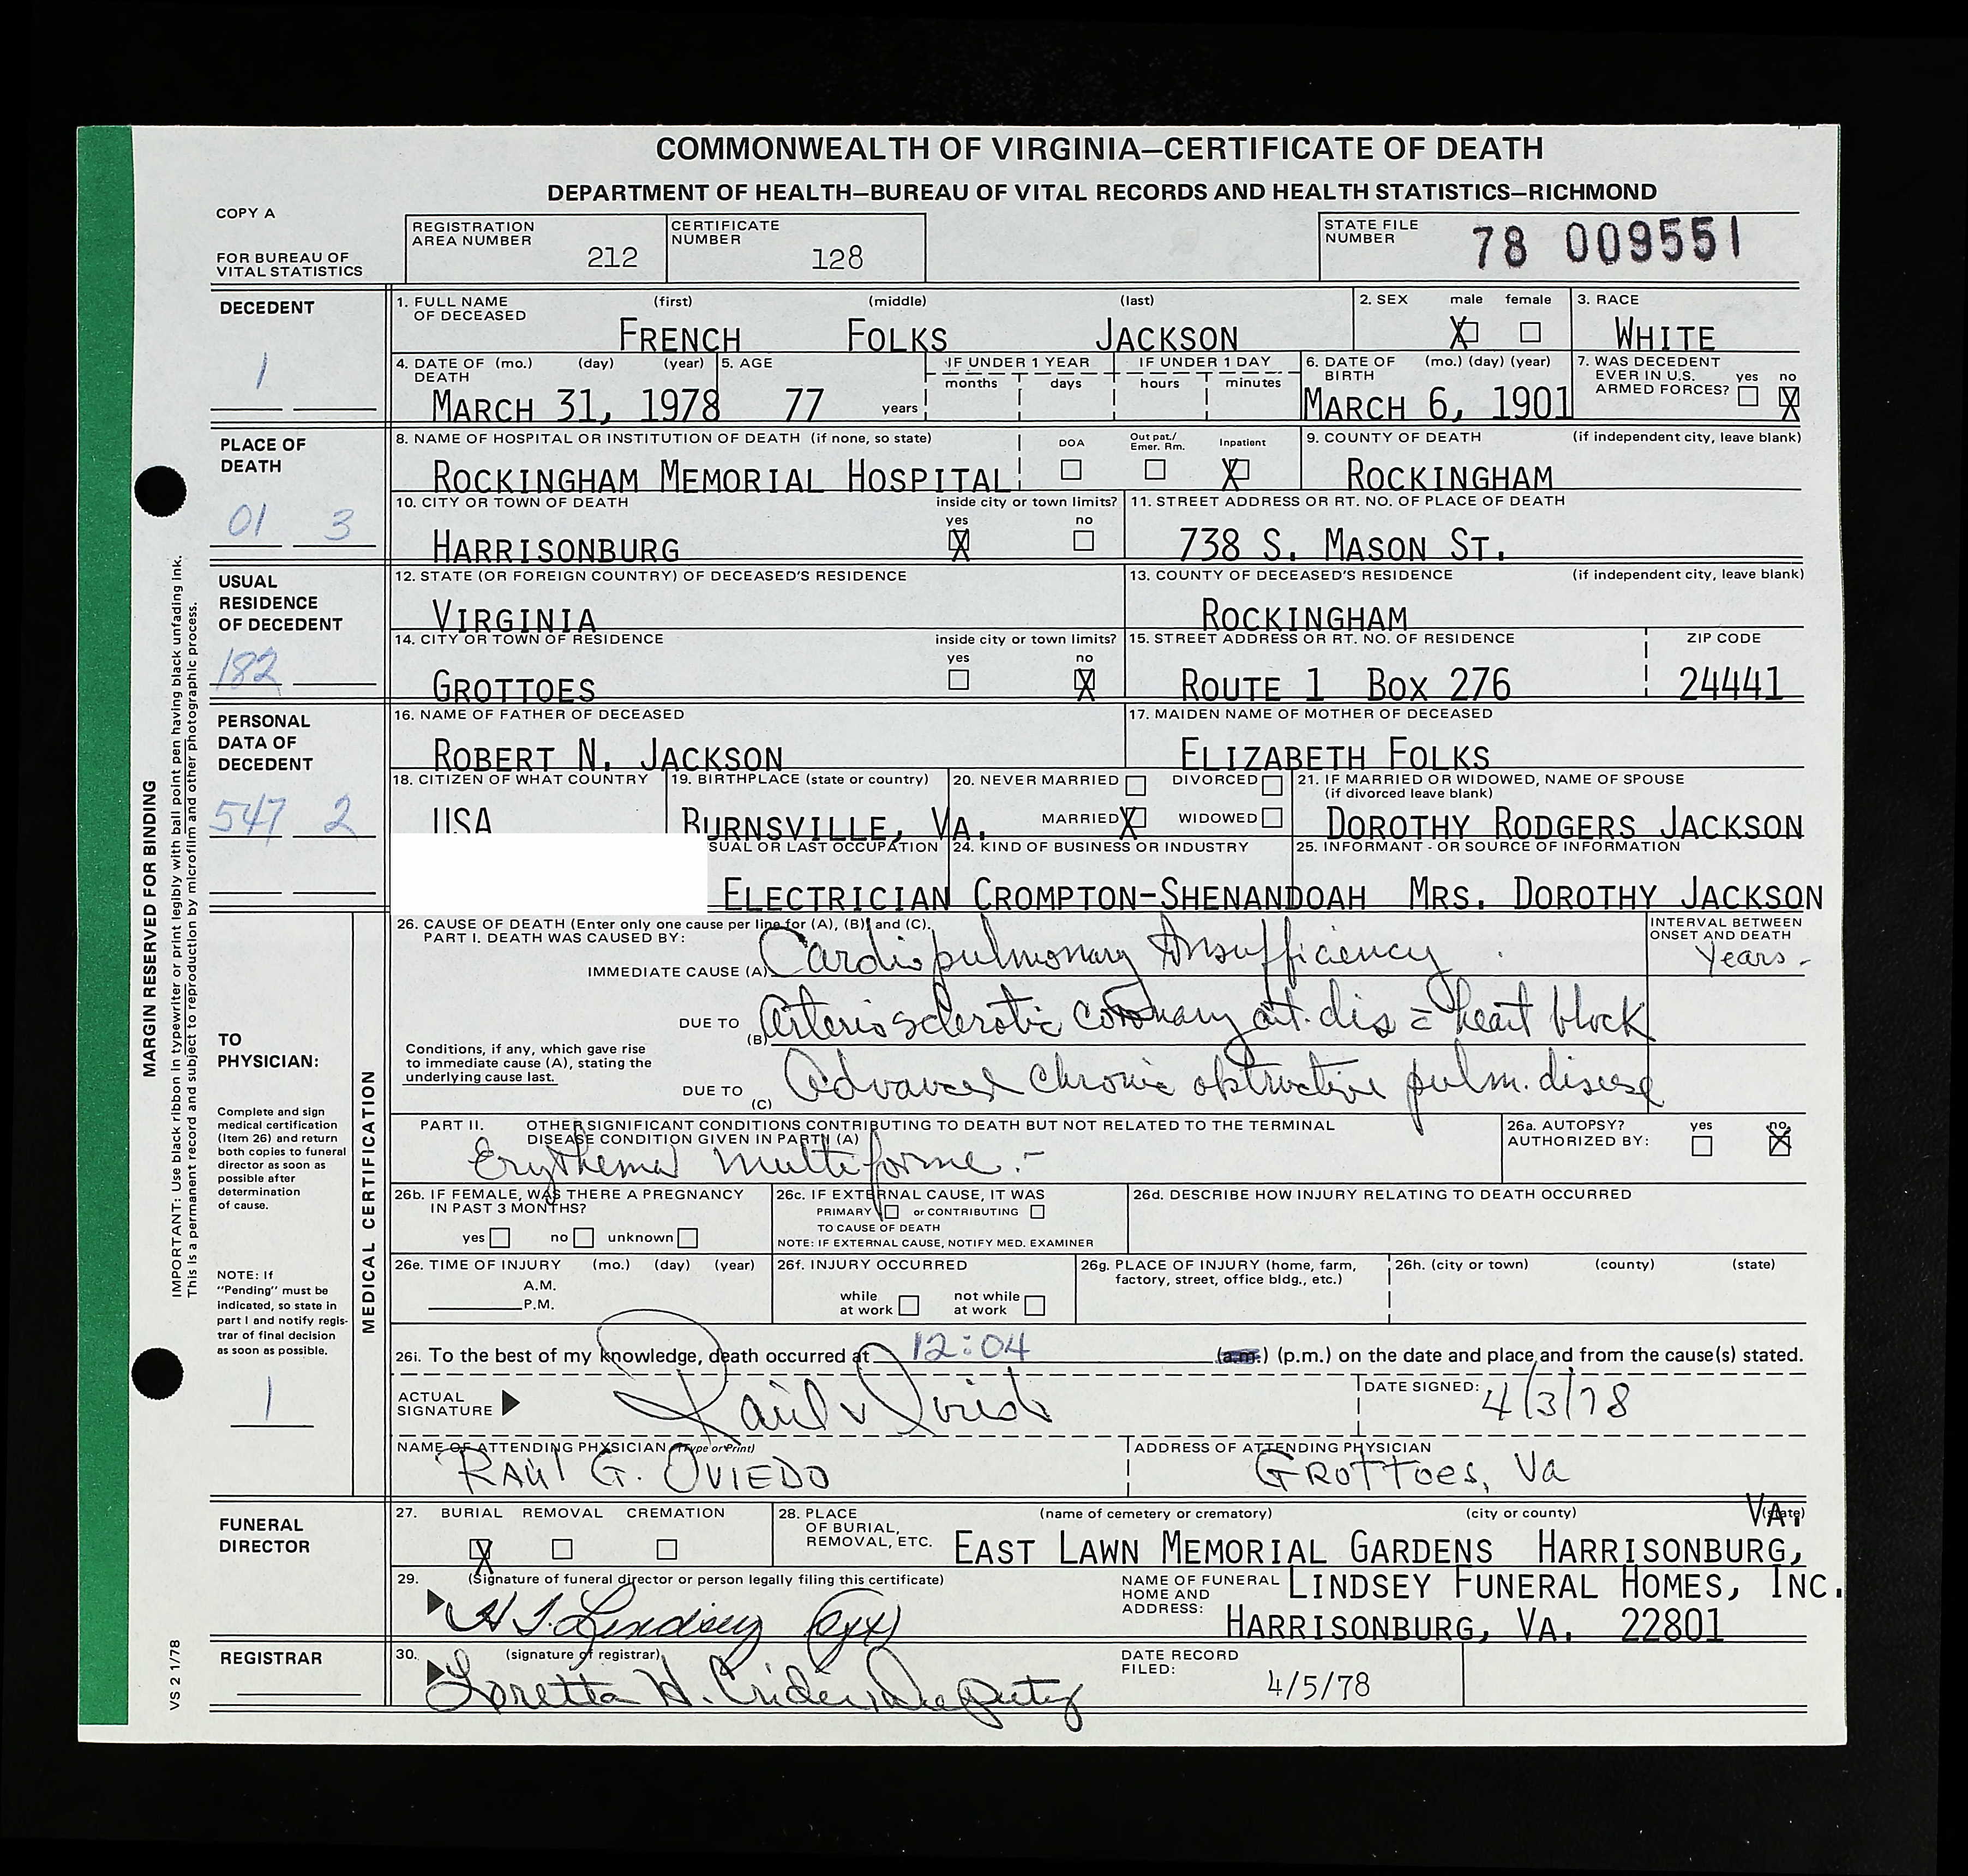 COMMONWEALTH OF VIRGINIA—CERTIFICATE OF DEATH
DEPARTMENT OF HEALTH—BUREAU OF VITAL RECORDS AND HEALTH STATISTICS—RICHMOND
COPY A
FOR BUREAU OF VITAL STATISTICS
REGISTRATION AREA NUMBER 212
CERTIFICATE NUMBER 128
STATE FILE NUMBER 78 009551
DECEDENT
1
1. FULL NAME OF DECEASED (first) (middle) (last)
FRENCH FOLKS JACKSON
2. SEX male female
X
3. RACE
WHITE
4. DATE OF DEATH (mo.) (day) (year)
MARCH 31, 1978
5. AGE
77 years
IF UNDER 1 YEAR
months days
IF UNDER 1 DAY
hours minutes
6. DATE OF BIRTH (mo.) (day) (year)
MARCH 6, 1901
7. WAS DECEDENT EVER IN U.S. ARMED FORCES? yes no
X
PLACE OF DEATH
01 3
8. NAME OF HOSPITAL OR INSTITUTION OF DEATH (if none, so state)
ROCKINGHAM MEMORIAL HOSPITAL
DOA Out pat./ Emer. Rm. Inpatient
X
9. COUNTY OF DEATH (if independent city, leave blank)
ROCKINGHAM
10. CITY OR TOWN OF DEATH inside city or town limits?
yes no
HARRISONBURG X
11. STREET ADDRESS OR RT. NO. OF PLACE OF DEATH
738 S. MASON ST.
USUAL RESIDENCE OF DECEDENT
182
12. STATE (OR FOREIGN COUNTRY) OF DECEASED'S RESIDENCE
VIRGINIA
13. COUNTY OF DECEASED'S RESIDENCE (if independent city, leave blank)
ROCKINGHAM
14. CITY OR TOWN OF RESIDENCE inside city or town limits?
yes no
GROTTOES X
15. STREET ADDRESS OR RT. NO. OF RESIDENCE ZIP CODE
ROUTE 1 BOX 276 24441
PERSONAL DATA OF DECEDENT
547 2
16. NAME OF FATHER OF DECEASED
ROBERT N. JACKSON
17. MAIDEN NAME OF MOTHER OF DECEASED
ELIZABETH FOLKS
18. CITIZEN OF WHAT COUNTRY
USA
19. BIRTHPLACE (state or country)
BURNSVILLE, VA.
20. NEVER MARRIED DIVORCED
MARRIED X WIDOWED
21. IF MARRIED OR WIDOWED, NAME OF SPOUSE
(if divorced leave blank)
DOROTHY RODGERS JACKSON
SUAL OR LAST OCCUPATION
ELECTRICIAN
24. KIND OF BUSINESS OR INDUSTRY
CROMPTON-SHENANDOAH
25. INFORMANT - OR SOURCE OF INFORMATION
MRS. DOROTHY JACKSON
MARGIN RESERVED FOR BINDING
IMPORTANT: Use black ribbon in typewriter or print legibly with ball point pen having black unfading ink.
This is a permanent record and subject to reproduction by microfilm and other photographic process.
MEDICAL CERTIFICATION
TO PHYSICIAN:
Complete and sign
medical certification
(Item 26) and return
both copies to funeral
director as soon as
possible after
determination
of cause.
NOTE: If
"Pending" must be
indicated, so state in
part I and notify regis-
trar of final decision
as soon as possible.
1
26. CAUSE OF DEATH (Enter only one cause per line for (A), (B), and (C).
PART I. DEATH WAS CAUSED BY:
INTERVAL BETWEEN ONSET AND DEATH
IMMEDIATE CAUSE (A) Cardiopulmonary Insufficiency Years -
DUE TO (B) Arteriosclerotic coronary art. dis c̄ heart block
Conditions, if any, which gave rise
to immediate cause (A), stating the
underlying cause last.
DUE TO (C) Advanced chronic obstructive pulm. disease
PART II. OTHER SIGNIFICANT CONDITIONS CONTRIBUTING TO DEATH BUT NOT RELATED TO THE TERMINAL
DISEASE CONDITION GIVEN IN PART I (A)
Erythema multiforme.-
26a. AUTOPSY? AUTHORIZED BY: yes no
X
26b. IF FEMALE, WAS THERE A PREGNANCY
IN PAST 3 MONTHS?
yes no unknown
26c. IF EXTERNAL CAUSE, IT WAS
PRIMARY or CONTRIBUTING
TO CAUSE OF DEATH
NOTE: IF EXTERNAL CAUSE, NOTIFY MED. EXAMINER
26d. DESCRIBE HOW INJURY RELATING TO DEATH OCCURRED
26e. TIME OF INJURY (mo.) (day) (year)
A.M.
P.M.
26f. INJURY OCCURRED
while at work not while at work
26g. PLACE OF INJURY (home, farm,
factory, street, office bldg., etc.)
26h. (city or town) (county) (state)
26i. To the best of my knowledge, death occurred at 12:04 (a.m.) (p.m.) on the date and place and from the cause(s) stated.
ACTUAL SIGNATURE Raúl Oviedo
DATE SIGNED: 4/3/78
NAME OF ATTENDING PHYSICIAN (Type or Print)
RAÚl G. OVIEDO
ADDRESS OF ATTENDING PHYSICIAN
GROTTOES, Va
FUNERAL DIRECTOR
27. BURIAL REMOVAL CREMATION
X
28. PLACE OF BURIAL, REMOVAL, ETC. (name of cemetery or crematory) (city or county) (state)
EAST LAWN MEMORIAL GARDENS HARRISONBURG, VA.
29. (Signature of funeral director or person legally filing this certificate)
NAME OF FUNERAL HOME AND ADDRESS:
LINDSEY FUNERAL HOMES, INC.
HARRISONBURG, VA. 22801
REGISTRAR
30. (signature of registrar)
Loretta H. Crider, Deputy
DATE RECORD FILED: 4/5/78
VS 2 1/78